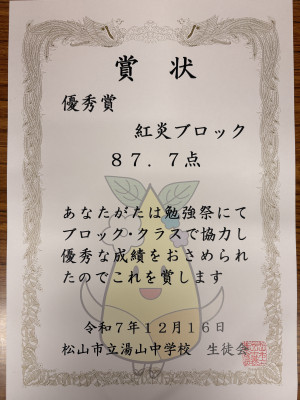 賞状
優秀賞
紅炎ブロック
87.7点
あなたがたは勉強祭にて
ブロック・クラスで協力し
優秀な成績をおさめられ
たのでこれを賞します
令和7年12月16日
松山市立湯山中学校 生徒会